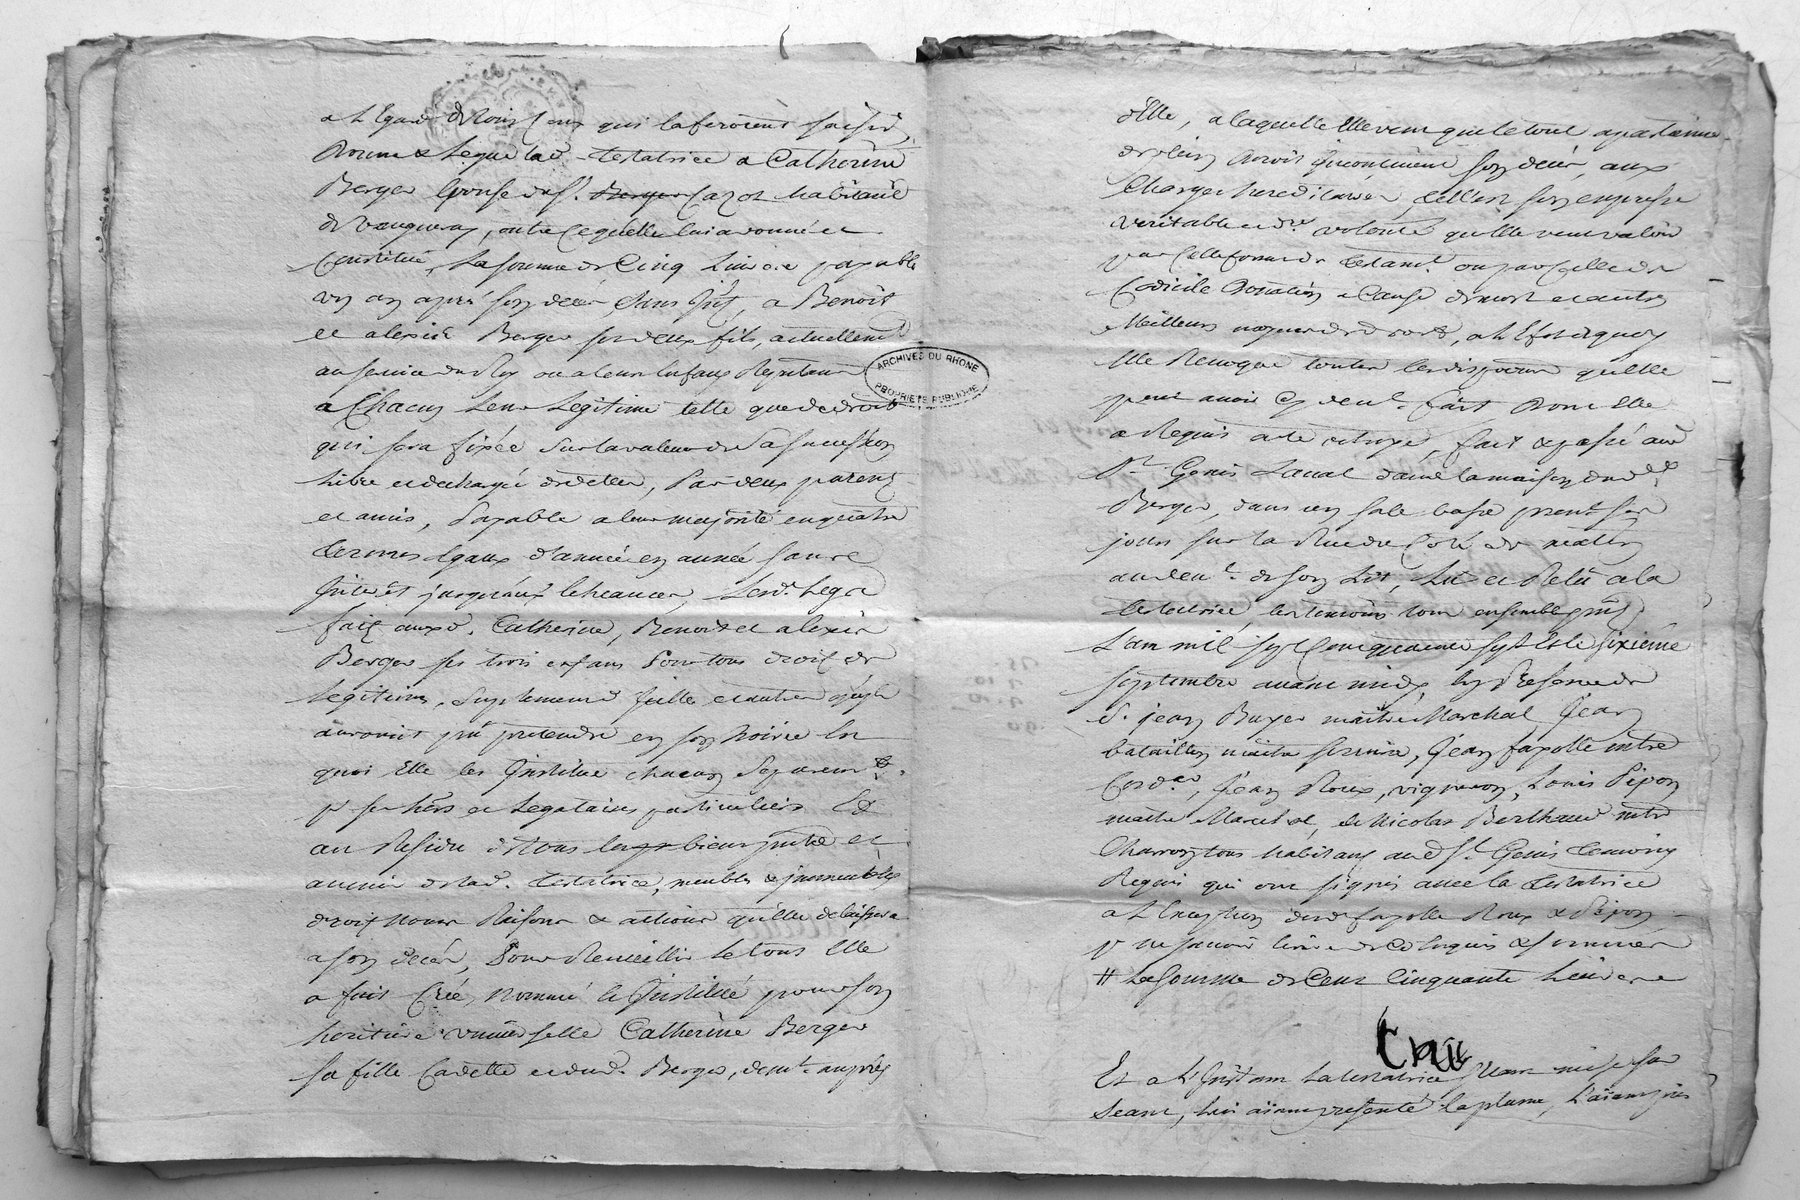 a L'Egard de tous ceux qui la feroient saisir,
Donne & Legue lad. testatrice a Catherine
Berger Epouse du Sr. Berger Cazot habitant
de Vaugneray, outre ce qu'elle lui a donné et
Constitué, La somme de Cinq Livres payable
un an apres son decés, sans Jnt, a Benoit
et alexis Berger ses deux fils, actuellement
au service du Roy ou a leurs Enfans
a Chacun Leur Legitime telle que de droit
qui sera fixée sur la valeur de sa succession
Libre et dechargée de dettes, Par deux parens
et amis, Payable a leur majorité en quatre
termes Egaux d'année en année sans
Jnterêt jusqu'aux Echeances, Lesd. Legs
faits auxd. Catherine, Benoit et alexis
Berger ses trois enfans Pour tous droits de
Legitime, suplement d'icelle et autres qu'ils
auroient pû pretendre en son hoirie En
quoi Elle les Jnstitue chacun separemt.
pr ses hers et Legataires particuliers Et
au Residu de tous les biens presens et
avenir de lad. testatrice, meubles & jmmeubles
droits noms Raisons & actions qu'elle delaissera
a son decés, Pour Recueillir Le tout Elle
a fait Créé, Nommé & Jnstitué pour son
heritiere universelle Catherine Berger
sa fille Cadette et dud. Berger, demt. auprés
d'Elle, a laquelle Elle veut que le tout apartienne
de plein droit jncontinent son decés, aux
Charges hereditaires, telle est son expresse
veritable et dre. volonté qu'Elle veut valoir
par telle forme de testamt. ou par celle de
Codicile Donation a Cause de mort et autres
Meilleurs moyens de droit, a L'Effet de quoy
Elle Revoque toutes les dispositions qu'Elle
peut avoir cy devt. fait Dont Elle
a Requis acte octroyé, fait & passé aud
St Genis Laval dans la maison dud.
Berger, dans une sale basse prenant son
jour sur la Rue du Coté de matin
au devt. de son Lit, Lu et Relû a la
testatrice, les temoins tous ensemble pnts
L'an mil sept Cent quarante sept & le sixiême
septembre avant midy, En Presence de
Sr. jean Buyer maitre Marchal Jean
bataillon maitre serrurier, Jean fayolle mtre
Cordr., Jean Roux, vigneron, Louis Pepon
maitre Marchal, & Nicolas Berthaud mtre
Charron tous habitans aud St. Genis temoins
Requis qui ont signés avec la testatrice
a L'Exception desd. fayolle Roux & Pepon
pr ne savoir Ecrire de ce Enquis & sommés
# La somme de Cent Cinquante Livres
Et a L'Jnstant La testatrice s'Etant mise sur
seant, Lui aiant presenté la plume, L'aiant
ARCHIVES DU RHONE
PROPRIETE PUBLIQUE